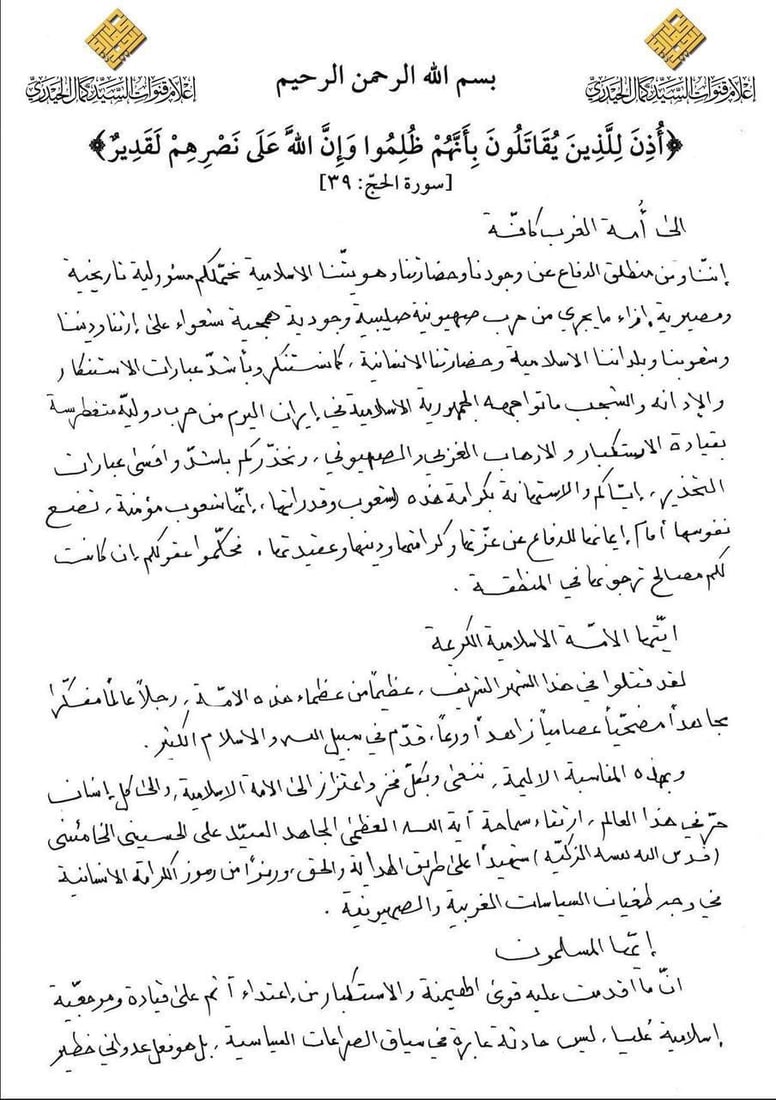 إعلام قنوات السيد كمال الحيدري
إعلام قنوات السيد كمال الحيدري
بسم الله الرحمن الرحيم
﴿أُذِنَ لِلَّذِينَ يُقَاتَلُونَ بِأَنَّهُمْ ظُلِمُوا وَإِنَّ اللَّهَ عَلَى نَصْرِهِمْ لَقَدِيرٌ﴾
[سورة الحجّ: ٣٩]
الى أُمة الغرب كافّة
إننّا ومن منطلق الدفاع عن وجودنا وحضارتنا وهويتّنا الاسلامية نحمّلكم مسؤولية تاريخية
ومصيرية إزاء ما يجري من حرب صهيونية صليبية وجودية همجية شعواء على إرثنا وديننا
وشعوبنا وبلداننا الاسلامية وحضارتنا الانسانية، كما نستنكر وبأشدّ عبارات الاستنكار
والإدانه والشجب ما تواجهه الجمهورية الاسلامية في إيران اليوم من حرب دوليّة متغطرسة
بقيادة الاستكبار والارهاب الغربي والصهيوني، ونحذّركم بأشدّ وأقسى عبارات
التحذير، إيّاكم والاستهانة بكرامة هذه الشعوب وقدراتها، إنمّا شعوب مؤمنة، تضع
نفوسها أمام إيمانها للدفاع عن عزّتها وكرامتها ودينها وعقيدتها. فحكّموا عقولكم إن كانت
لكم مصالح ترجونها في المنطقة.
ايّتها الامّة الاسلامية الكريمة
لقد قتلوا في هذا الشهر الشريف، عظيماً من عظماء هذه الامّة، رجلاً عالماً مفكّراً
مجاهداً مضحّياً عصامياً زاهداً ورعاً، قدّم في سبيل الله والاسلام الكثير.
وبهذه المناسبة الاليمة، ننعى وبكلّ فخر واعتزاز الى الأمة الاسلامية، والى كل إنسان
حرّ في هذا العالم، ارتقاء سماحة آية الله العظمى المجاهد السيّد علي الحسيني الخامنئي
(قدس الله نفسه الزكيّة) شهيداً على طريق الهداية والحق، ورمزاً من رموز الكرامة الانسانية
في وجه طغيان السياسات الغربية والصهيونية.
إيّها المسلمون
انّ ما اقدمت عليه قوى الهيمنة والاستكبار من إعتداء آثم على قيادة ومرجعيّة
إسلامية عُليا، ليس حادثة عابرة في سياق الصراعات السياسية، بل هو فعل عدواني خطير